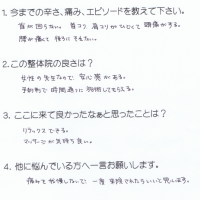 1. 今までの辛さ、痛み、エピソードを教えて下さい。
首が回らない。首コリ 肩コリがひどくて 頭痛がする。
腰が痛くて
2. この整体院の良さは？
女性の先生なので 安心感がある。
予約制で 時間通りに 施術してもらえる。
3. ここに来て良かったなぁと思ったことは？
リラックスできる。
マッサージが気持ち良い。
4. 他に悩んでいる方へ一言お願いします。
痛みを我慢しないで 一度 来院されたらいいと思います。